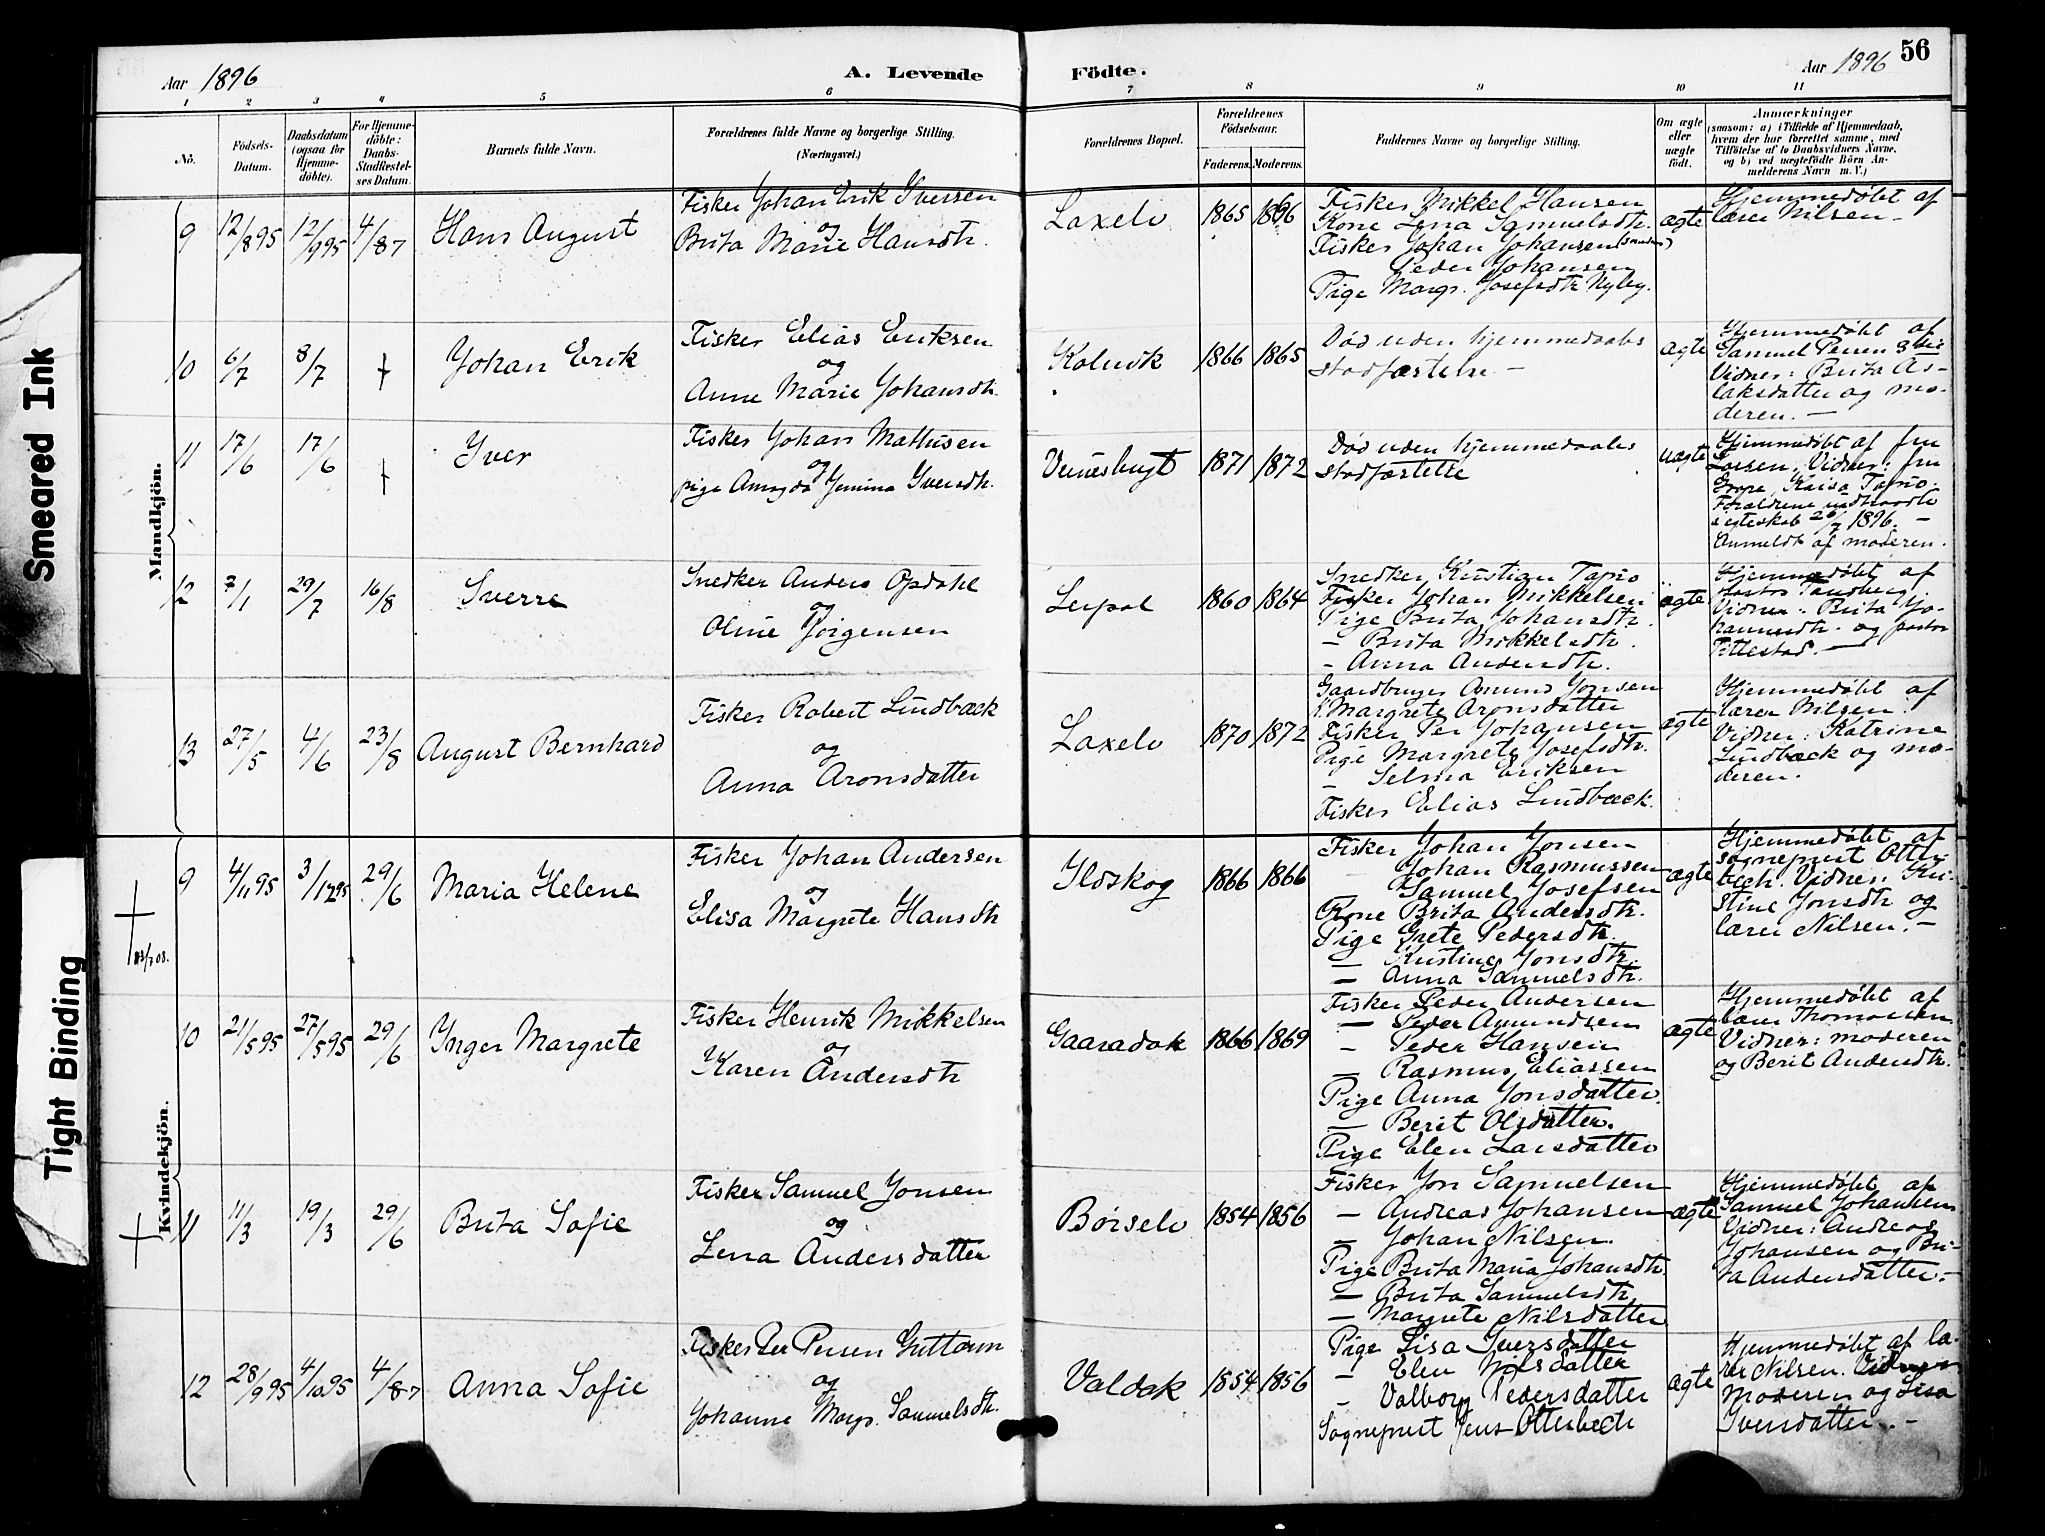 Smeared Ink
Tight Binding
Aar 1896
A. Levende
Födte.
Aar 1896
56
1 2 3 4 5 6 7 8 9 10 11
No.
Födsels-
Datum.
Daabsdatum
(ogsaa for
Hjemme-
döbte).
For Hjemme-
döbte:
Daabs-
Stadfæstel-
ses Datum.
Barnets fulde Navn.
Forældrenes fulde Navne og borgerlige Stilling.
(Næringsvei.)
Forældrenes Bopæl.
Forældrenes
Födselsaar.
Faderens.
Moderens.
Faddernes Navne og borgerlige Stilling.
Om ægte
eller
uægte
födt.
Anmærkninger
(saasom: a) i Tilfælde af Hjemmedaab,
hvem der har forrettet samme, med
Tilföielse af to Daabsvidners Navne,
og b) ved uægtefödte Börn An-
melderens Navn m. V.)
Mandkjön.
9 12/8 95 12/9 95 4/8 87
Hans August
Fisker Johan Erik Iversen
og
Brita Marie Hansdtr.
Laxelv 1865 1866
Fisker Mikkel Hansen
Kone Lena Samuelsdtr.
Fisker Johan Johansen
Peder Johansen
Pige Margr. Josefsdtr Nyby.
ægte
Hjemmedøbt af
lærer Nilsen.
10 6/7 8/7 +
Johan Erik
Fisker Elias Eriksen
og
Anne Marie Johansdtr.
Kolvik 1866 1865
Død uden hjemmedaabs
stadfæstelse. —
ægte
Hjemmedøbt af
Samuel Persen
Vidner: Brita As-
laksdatter og mo-
deren. —
11 17/6 17/6 +
Iver
Fisker Johan Mathisen
og
pige Amagda Jemina Iversdtr.
Veinesbugt 1871 1872
Død uden hjemmedaabs
stadfæstelse
uægte
Hjemmedøbt af fru
Larsen. Vidner: fru
Kaisa Tapio.
Forældrene indtraadte
i egteskab 26/7 1896. —
Anmeldt af moderen.
12 7/1 29/7 16/8
Sverre
Snedker Anders Opdahl
og
Oline Jörgensen
Leipol 1860 1864
Snedker Kristian Tapio
Fisker Johan Mikkelsen
Pige Brita Johansdtr.
— Brita Mikkelsdtr.
— Anna Andersdtr.
ægte
Hjemmedøbt af
pastor Tandberg.
Vidner: Brita Jo-
hannesdtr. og pastor
Tittestad. —
13 27/5 4/6 23/8
August Bernhard
Fisker Robert Lindbæck
og
Anna Aronsdatter
Laxelv 1870 1872
Gaardbruger Amund Jonsen
K. Margrete Aronsdatter
Fisker Per Johansen
Pige Margrete Josefsdtr.
— Selma Eriksen
Fisker Elias Lindbæck.
ægte
Hjemmedøbt af
lærer Nilsen.
Vidner: Katrine
Lindbæck og mo-
deren.
Kvindekjön.
9 4/11 95 3/12 95 29/6
Maria Helene
Fisker Johan Andersen
og
Elisa Margrete Hansdtr
Ildskog 1866 1866
Fisker Johan Jonsen
— Johan Rasmussen
— Samuel Josefsen
Kone Brita Andersdtr.
Pige Grete Pedersdtr.
— Kristine Jonsdtr.
— Anna Samuelsdtr.
ægte
Hjemmedøbt af
sogneprest Otter-
bech. Vidner: Kri-
stine Jonsdtr og
lærer Nilsen. —
10 21/5 95 27/5 95 29/6
Inger Margrete
Fisker Henrik Mikkelsen
og
Karen Andersdtr
Gaaradak 1866 1869
Fisker Peder Andersen
— Peder Amundsen
— Peder Hansen
— Rasmus Eliassen
Pige Anna Jonsdatter.
— Berit Olsdatter.
Pige Elen Larsdatter
ægte
Hjemmedøbt af
lærer Thomassen
Vidner: moderen
og Berit Andersdtr.
11 11/3 19/3 29/6
Brita Sofie
Fisker Samuel Jonsen
og
Lena Andersdatter
Börselv 1854 1856
Fisker Jon Samuelsen
— Andreas Johansen
— Johan Nilsen.
Pige Brita Maria Johansdtr.
— Brita Samuelsdtr.
— Margrete Nilsdatter
ægte
Hjemmedøbt af
Samuel Johansen
Vidner: Andreas
Johansen og Bri-
ta Andersdatter. —
12 28/9 95 4/10 95 4/8 87
Anna Sofie
Fisker Per Persen Guttorm
og
Johanne Margr. Samuelsdtr.
Valdak 1854 1856
Pige Lisa Iversdatter
— Elen Nilsdatter
— Valborg Pedersdatter
Sogneprest Jens Otterbech
ægte
Hjemmedøbt af læ-
rer Nilsen. Vidner
Moderen og Lisa
Iversdatter. —